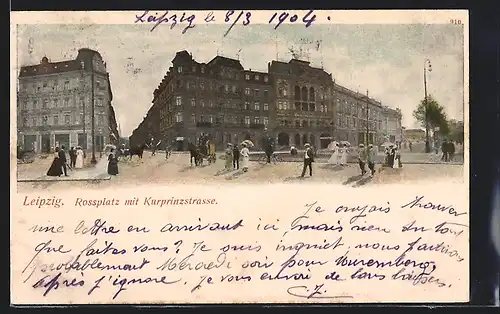 Leipzig le 8/3 1904
910
Leipzig. Rossplatz mit Kurprinzstrasse.
Je croyais trouver
une lettre en arrivant ici, mais rien du tout
que faites vous? Je suis inquiet, nous partirons
probablement Mercredi soir pour Nuremberg,
après j'ignore. Je vous envoie de bons baisers,